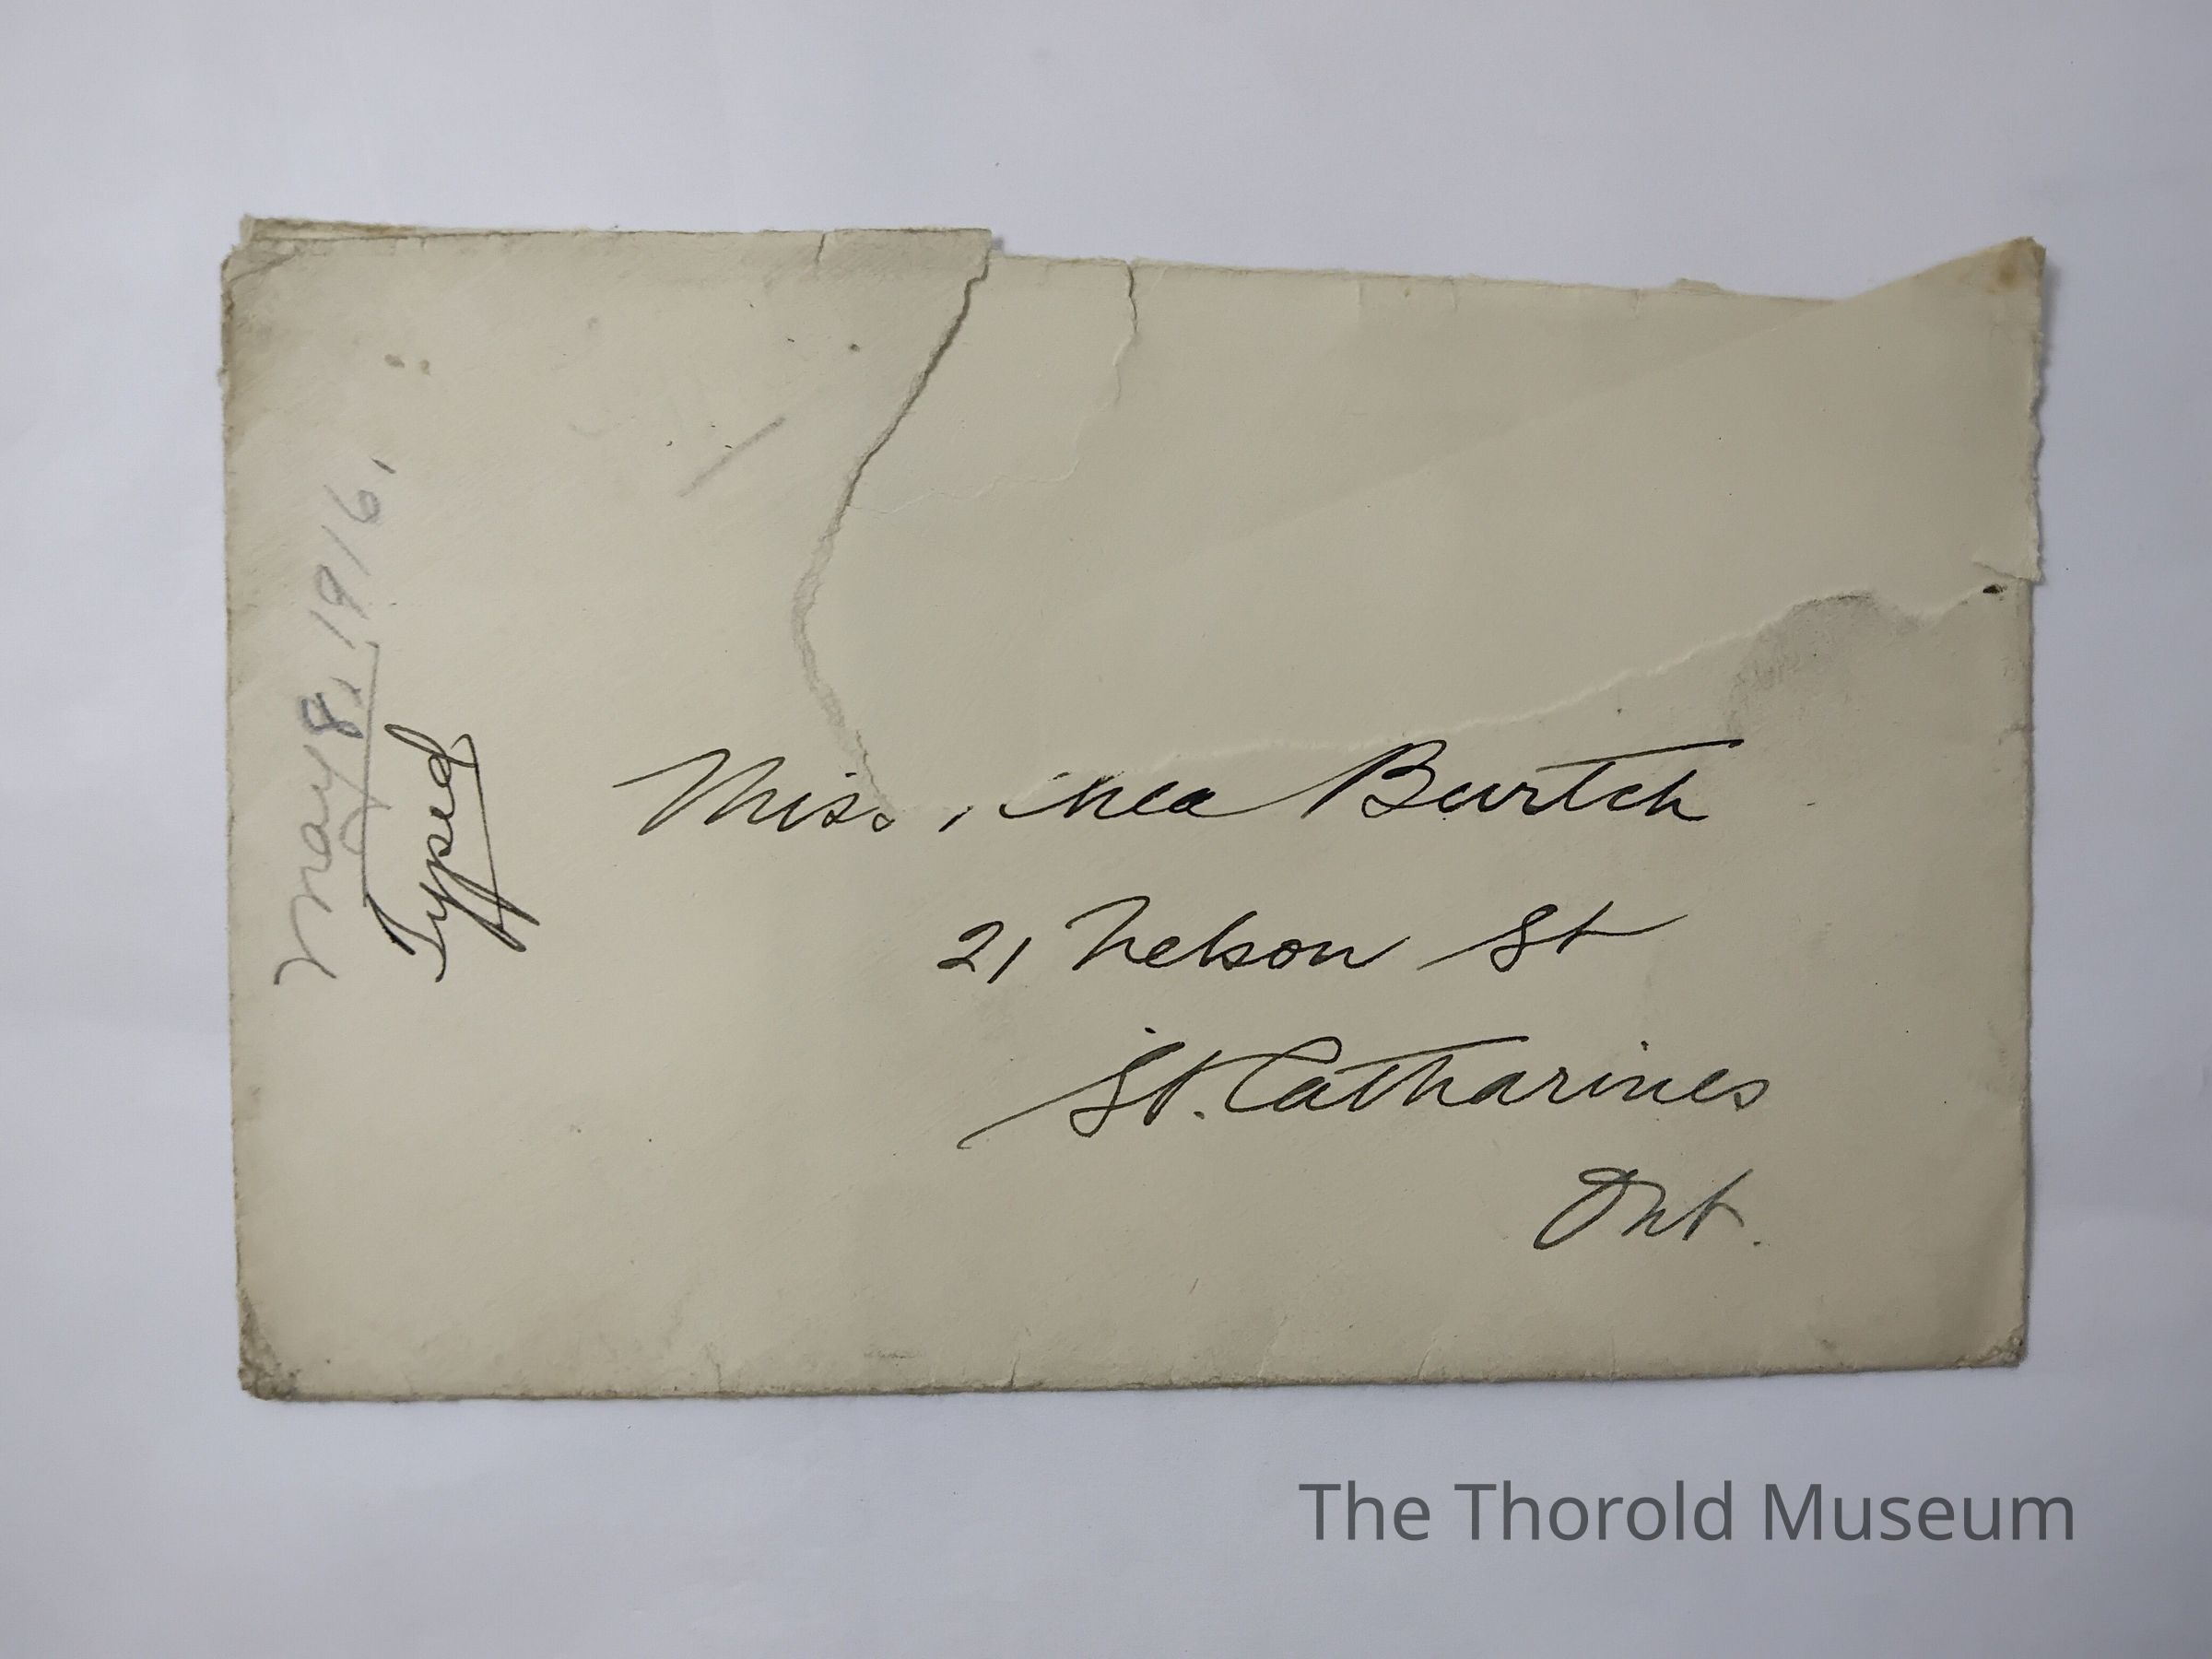 May 8, 1916.
Typed
Miss Burtch
21 Nelson St
St. Catharines
Ont.
The Thorold Museum